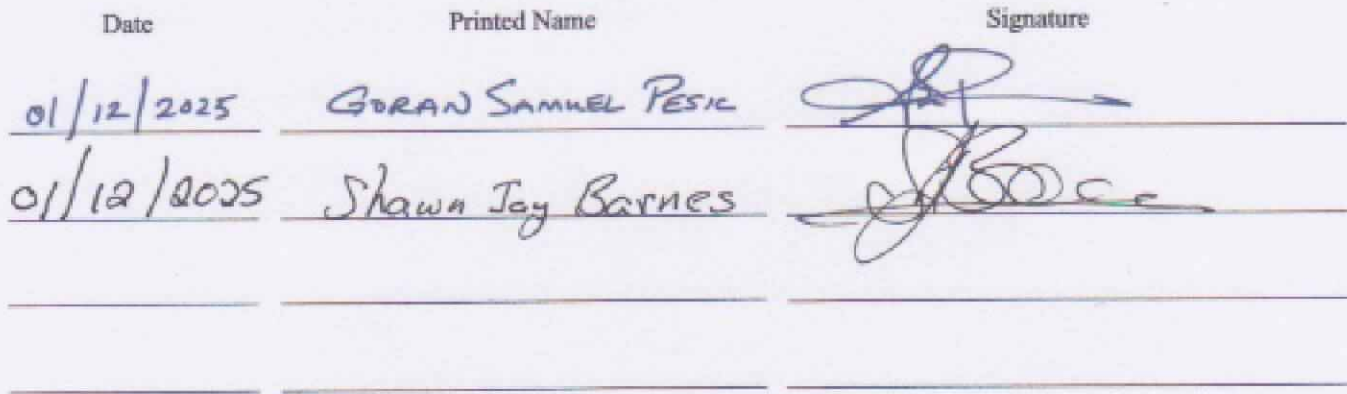 Date Printed Name Signature
01/12/2025 GORAN SAMUEL PESIC
01/12/2025 Shawn Jay Barnes